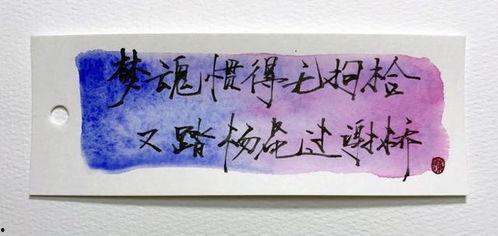 梦魂惯得无拘捡
又踏杨花过谢桥